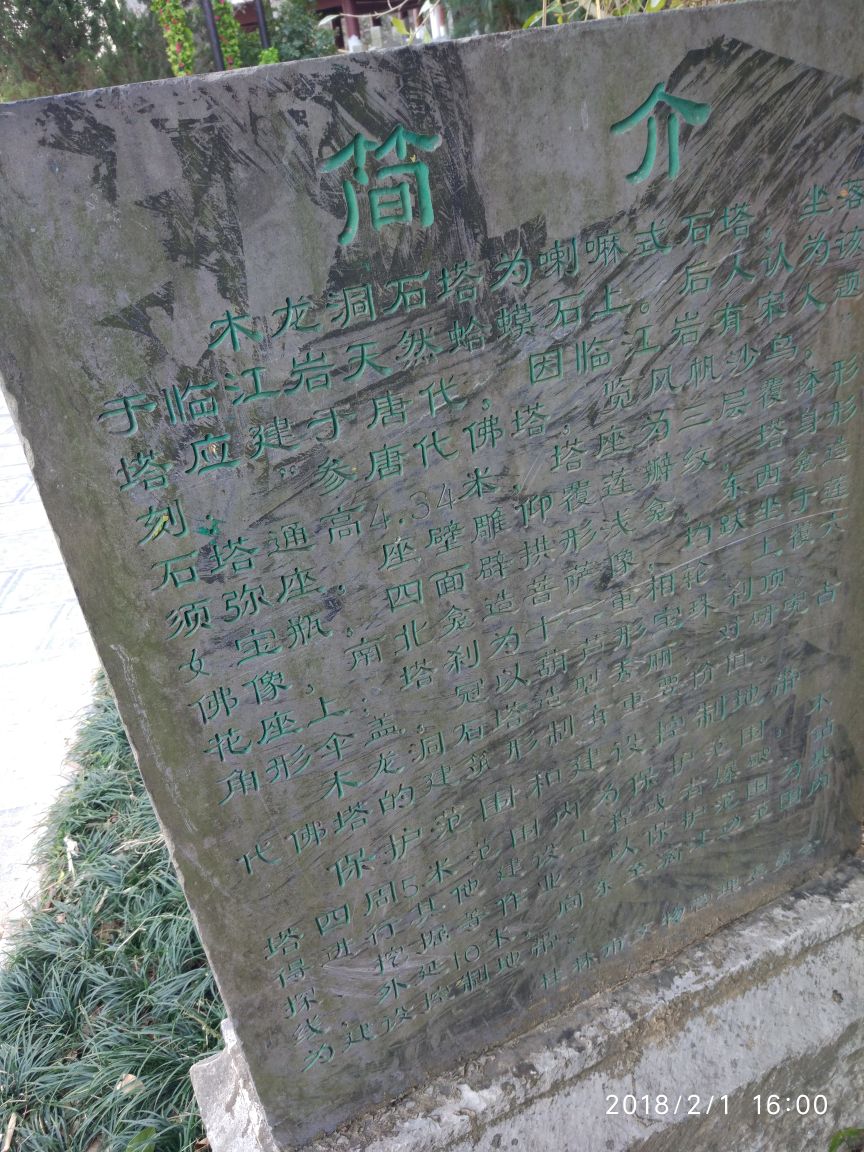 简介
木龙洞石塔为喇嘛式石塔。坐落
于临江岩天然蛤蟆石上。后人认为该
塔应建于唐代，因临江岩有宋人题
刻：“参唐代佛塔，览风帆沙鸟，
石塔通高4.34米，塔座为三层覆体形
须弥座，座壁雕仰覆莲瓣纹，塔身形
如宝瓶，四面辟拱形浅龛，东西龛造
佛像，南北龛造菩萨像，均趺坐于莲
花座上；塔刹为十三重相轮，上覆六
角形伞盖，冠以葫芦形宝珠刹顶。
木龙洞石塔造型秀丽，对研究古
代佛塔的建筑形制有重要价值。
保护范围和建设控制地带
塔四周5米范围内为保护范围，不
得进行其他建设工程或者爆破、钻
探、挖掘等作业，以保护范围为基
线，外延10米，向东至漓江边范围内
为建设控制地带。
桂林市文物管理委员会
2018/2/1 16:00